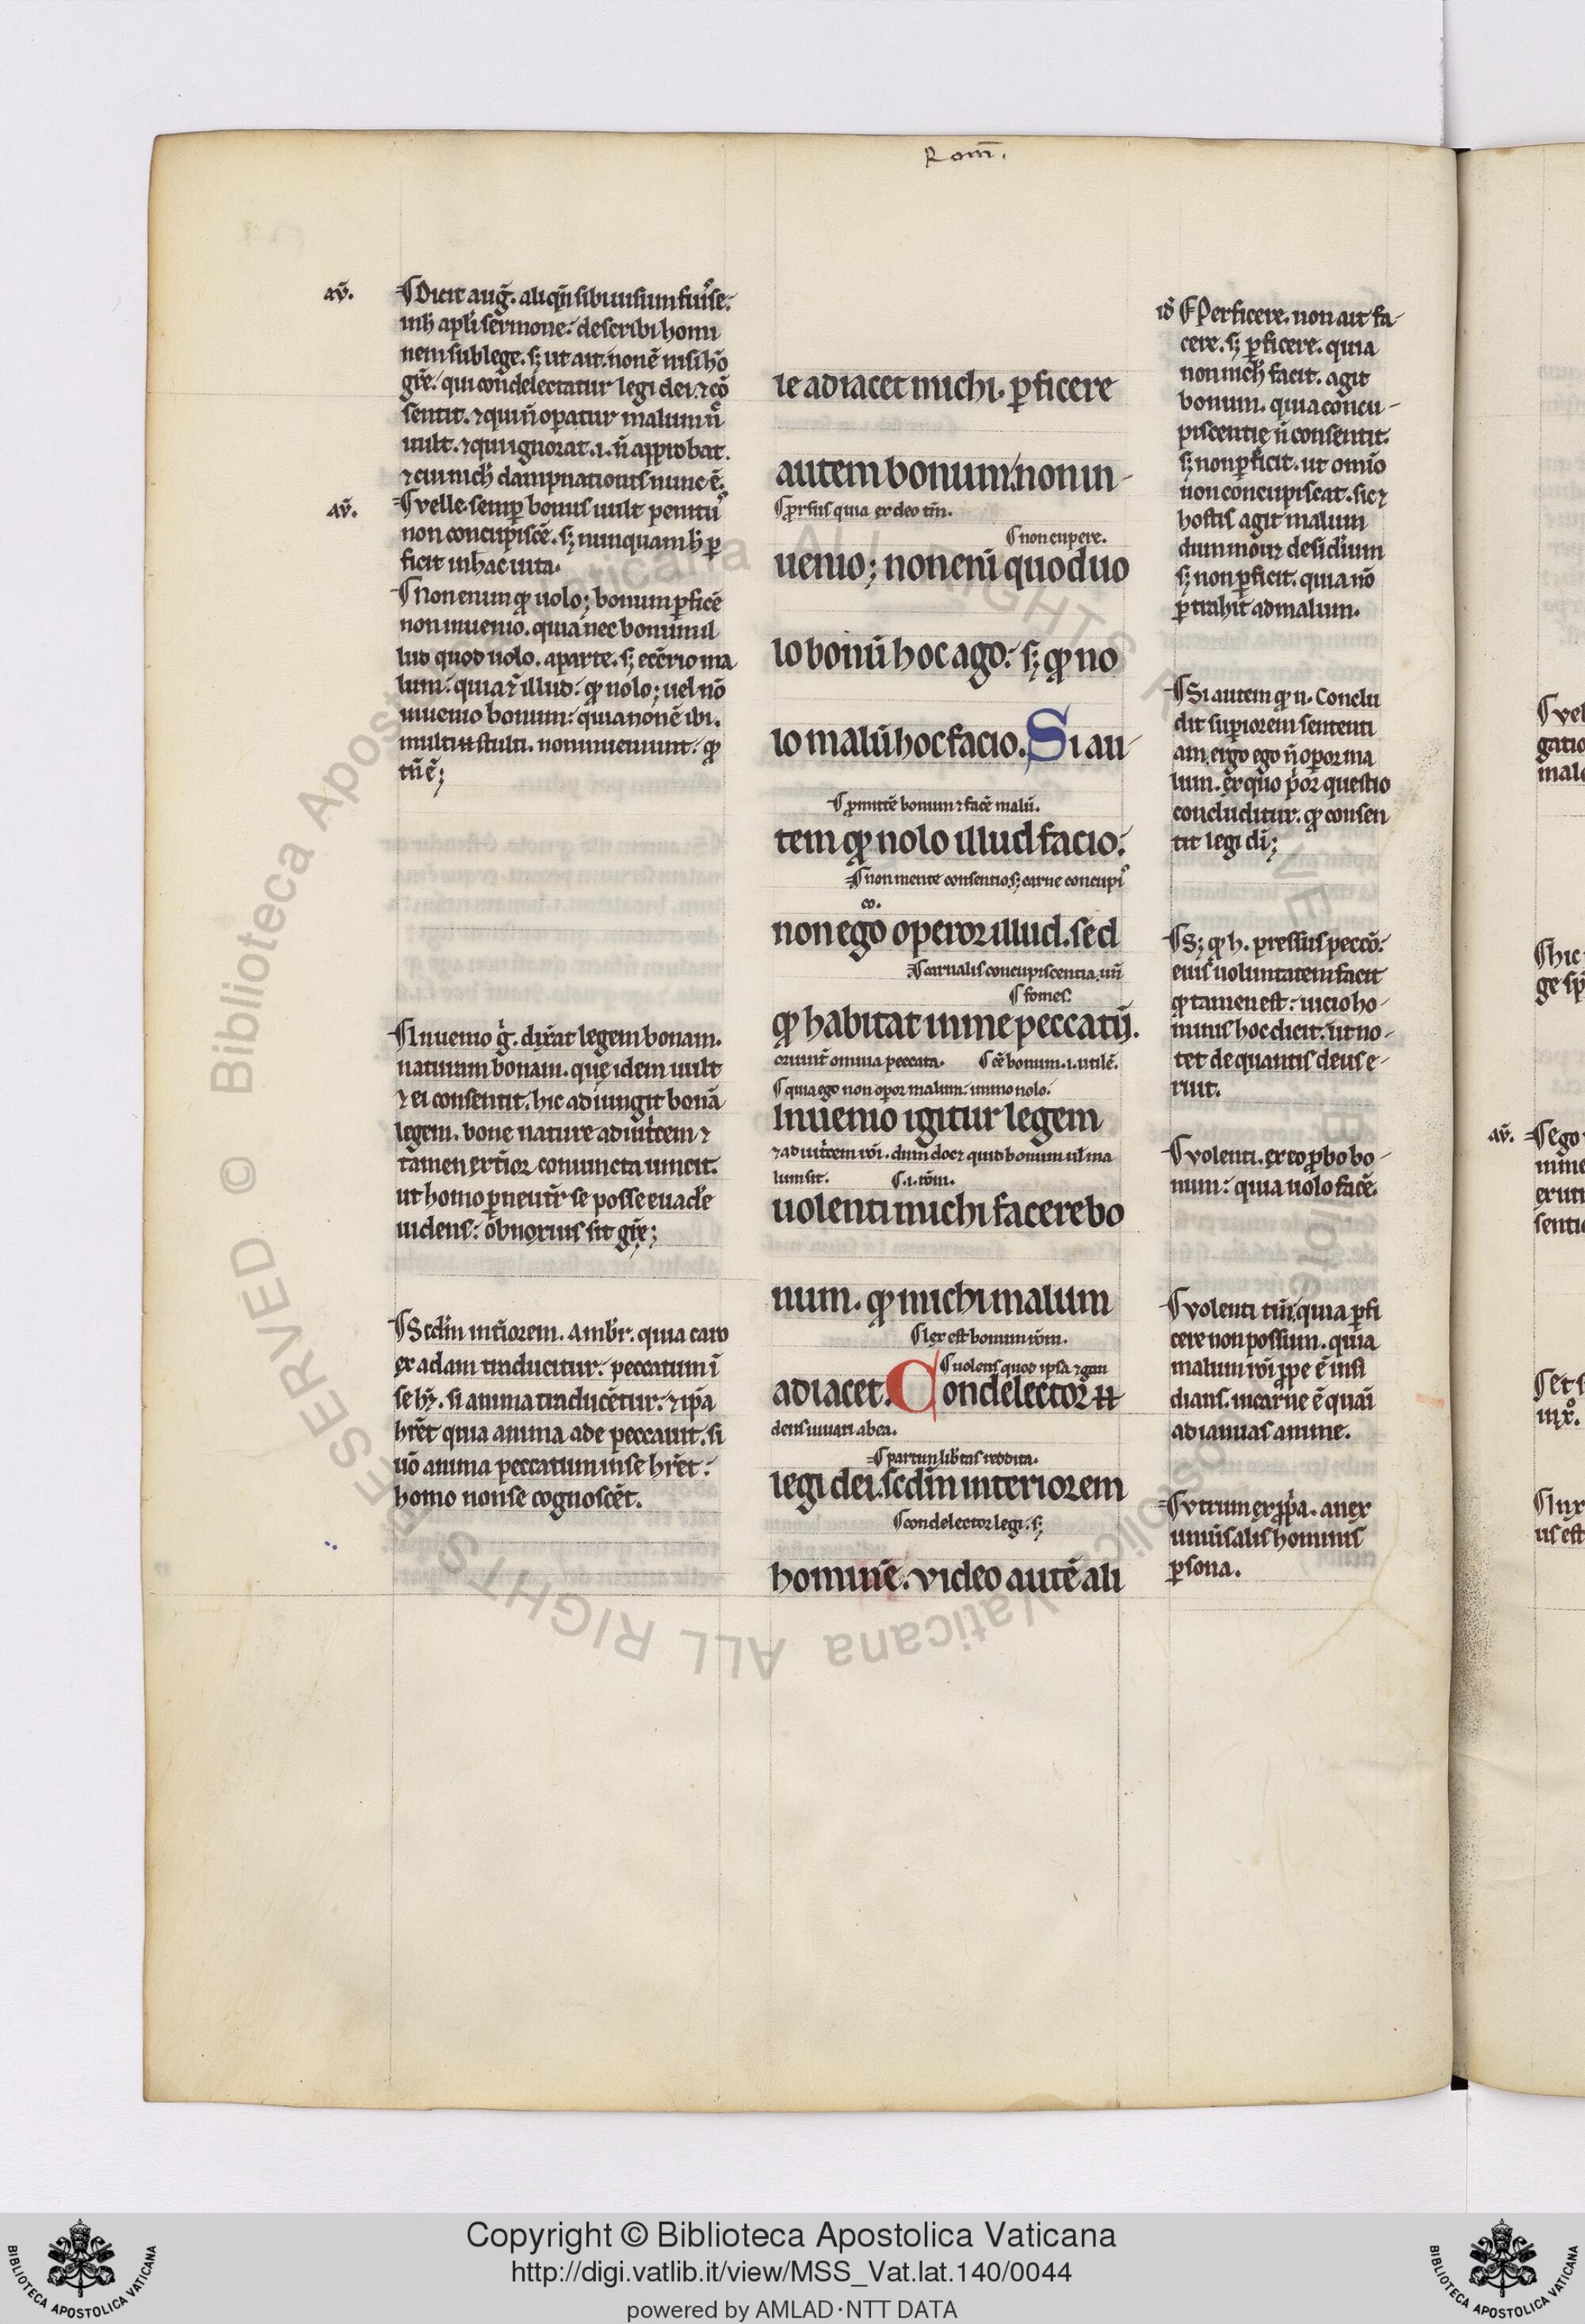 Rom̄.
aū.
¶Dicit auḡ. aliqn̄ sibi uisum fuisse.
in h̄ apl̓i sermone: describi homi
nem sub lege. sꝫ ut ait. non ē nisi hō
grē. qui condelectatur legi dei. ⁊ cō
sentit. ⁊ qui n̄ opatur malum n̄
uult. ⁊ qui ignorat .i. n̄ approbat.
⁊ cui nich̓ dampnationis nunc ē.
aū.
¶velle. semꝑ bonus uult penitus
non concupiscē. sꝫ nunquam h̄ ꝑ
ficit in hac uita.
¶Non enim qđ uolo; bonum ꝑficē
non inuenio. quia nec bonum il
lud quod uolo. aparte. sꝫ ecōrio ma
lum: quia ⁊ illud: qđ nolo; uel nō
inuenio bonum: quia non ē ibi.
multi ⁊ stulti. non inueniunt: qđ
tn̄ ē;
¶Inuenio g̓. dixat legem bonam.
naturam bonam. quę idem uult
⁊ ei consentit. hic adiungit bonā
legem. bone nature adiut̓cem ⁊
tamen ext̓ior coniuncta uincit.
ut homo ꝑ neutr̄ se posse euad̓e
uidens: obnoxius sit grę;
¶Scd̄m int̓iorem. Ambr̄. quia caro
ex adam traducitur: peccatum ī
se hꝫ. si anima traducētur: ⁊ ip̄a
hr̄et quia anima ade peccauit. si
uō anima peccatum in se hr̄et:
homo non se cognoscēt.
ie adiacet michi. ꝑficere
autem bonum: non in-
¶prorsus quia ex deo tm̄.
¶non cupere.
uenio; non enī quod uo
lo bonū hoc ago: sꝫ qđ no
lo malū hoc facio. Si au-
¶ꝓmittē bonum ⁊ facē malū.
tem qđ nolo illud facio:
¶non mente consentio. sꝫ carne concupis
co.
non ego operor illud. sed
¶carnalis concupiscentia. un̄
¶fomes.
qđ habitat in me peccatū.
oriunt̄ omnia peccata. ¶eē bonum .i. utilē.
¶quia ego non opor malum: immo nolo.
Inuenio igitur legem
⁊ adiut̓cem rōi. dum doc⁊ quid bonum ul̄ ma
lum sit. ¶.i. rōni.
uolenti michi facere bo
num. qđ michi malum
¶lex est bonum rōni.
¶uolens quod ipsa ⁊ gau
adiacet. Condelector n̄
dens iuuari ab ea.
¶partim lib̓tas reddita.
legi dei. scd̄m interiorem
¶condelector legi. sꝫ
hominē. video autē ali
id̄
¶Perficere. non ait fa-
cere. sꝫ ꝑficere. quia
non nich̓ facit. agit
bonum. quia concu-
piscentię n̄ consentit.
sꝫ non ꝑficit. ut omīo
non concupiscat. sic ⁊
hostis agit malum
dum mou⁊ desid̓ium
sꝫ non ꝑficit. quia nō
ꝑtrahit ad malum.
¶Si autem qđ n. Conclu
dit supiorem sententi
am. ergo ego n̄ opor ma
lum. ex quo p̓or questio
concluditur. qđ consen
tit legi dī;
¶Sꝫ qđ h. pressus peccō.
eius uoluntatem facit
qđ tamen est: uicio ho-
minis hoc dicit: ut no-
tet de quantis deus e-
ruit.
¶volenti. ex eo ꝓbo bo-
num: quia uolo facē.
¶volenti tm̄. quia ꝑfi
cere non possum. quia
malum rōi ꝓpe ē insi
dians. in carne ē quasi
ad ianuas anime.
¶vtrum ex ꝓp̄a. an ex
uniūsalis hominis
ꝑsona.
aū.
Copyright © Biblioteca Apostolica Vaticana
http://digi.vatlib.it/view/MSS_Vat.lat.140/0044
powered by AMLAD·NTT DATA